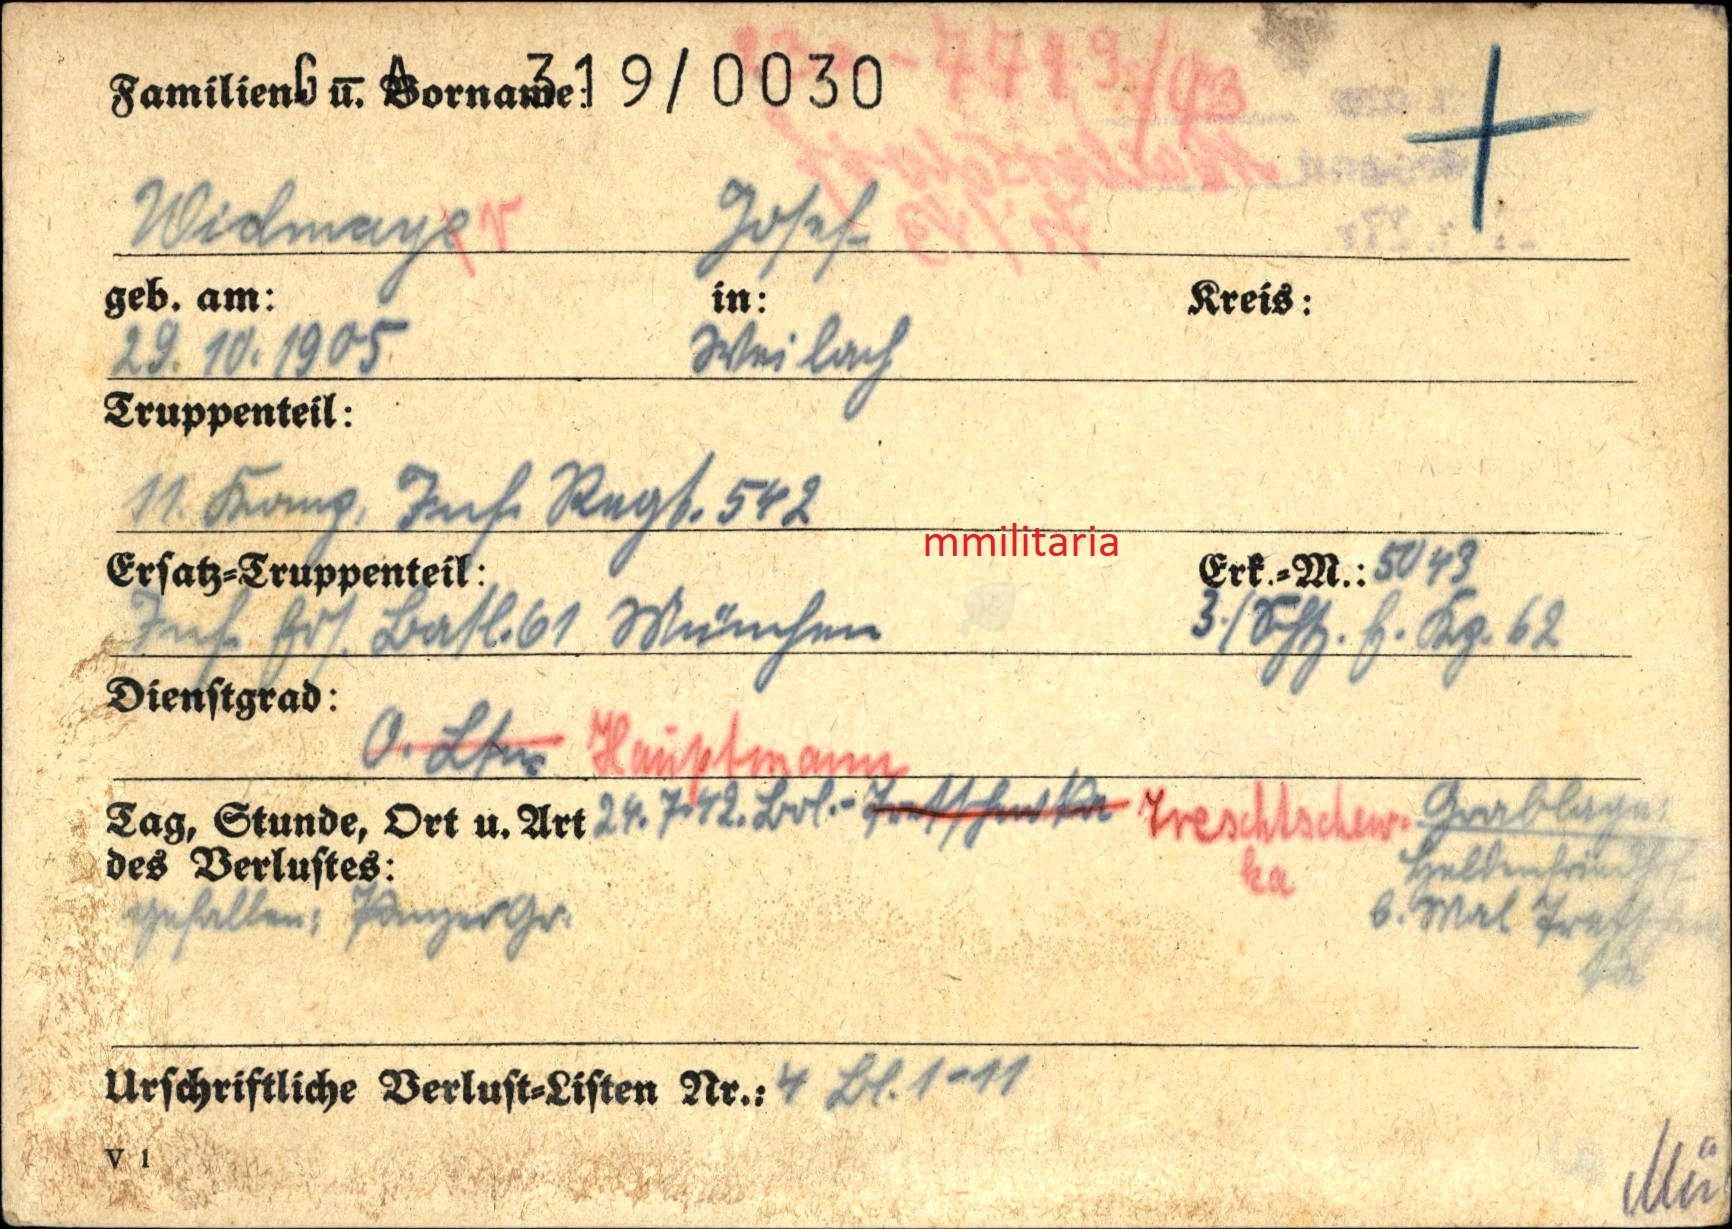 G - A 319/0030
Familien- u. Vorname:
Widmayer Josef
geb. am: in: Kreis:
29. 10. 1905 Weilach
Truppenteil:
11. Komp. Inf. Regt. 542
mmilitaria
Ersatz-Truppenteil: Erk.-M.: 5043
Inf. Ers. Batl. 61 München 3./Schtz. E. Kp. 62
Dienstgrad:
O. Ltn Hauptmann
Tag, Stunde, Ort u. Art 24.7.42. Bol.- Tretschewka Treschtschew- Grablage:
des Verlustes: ka Heldenfriedhof
gefallen: Panzer Gr. B. Mal
Urschriftliche Verlust-Listen Nr.: 4 Bl. 1-11
V 1
Mü